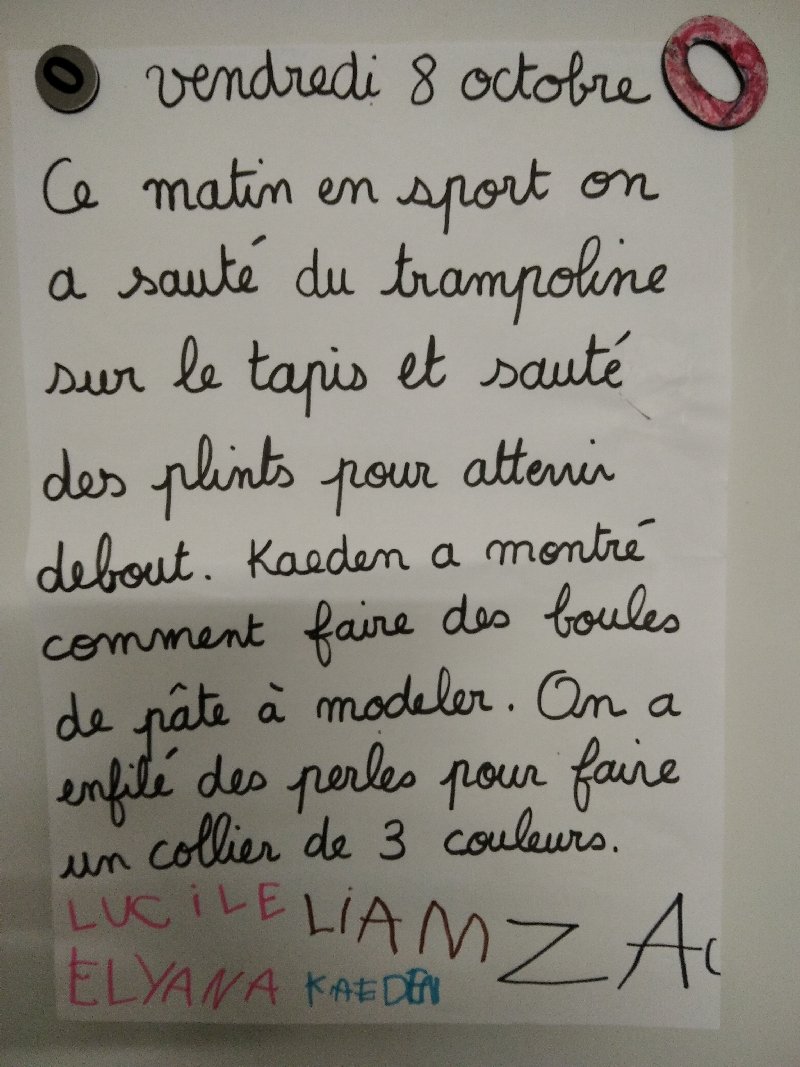 vendredi 8 octobre
Ce matin en sport on
a sauté du trampoline
sur le tapis et sauté
des plints pour atterrir
debout. Kaeden a montré
comment faire des boules
de pâte à modeler. On a
enfilé des perles pour faire
un collier de 3 couleurs.
LUCiLE LiAM ZAC
ELYANA KAEDEN